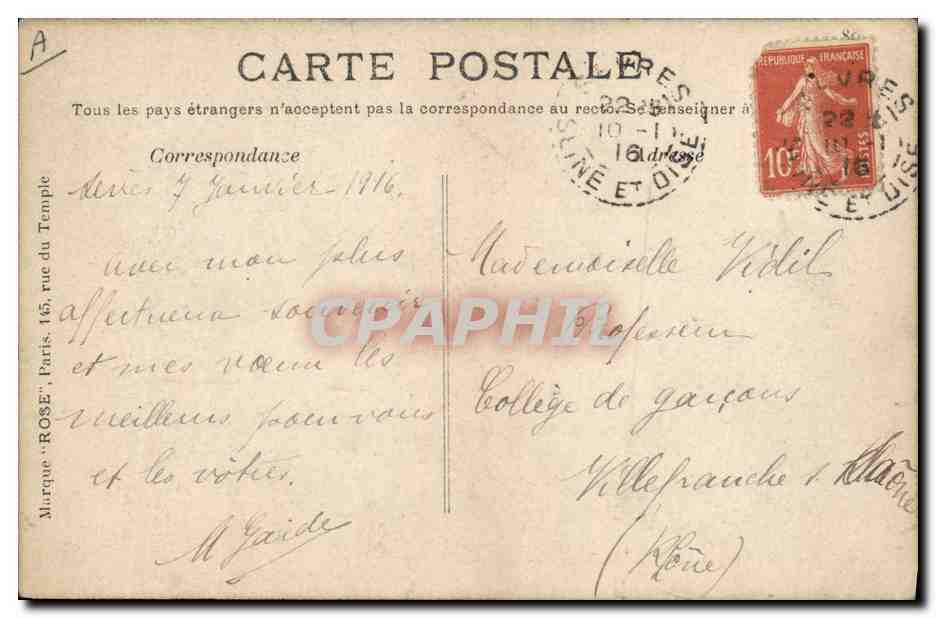 A
CARTE POSTALE
Tous les pays étrangers n'acceptent pas la correspondance au recto. Se renseigner à
Correspondance
Adresse
Sèvres 7 Janvier 1916.
avec mon plus
affectueux souvenir
et mes vœux les
meilleurs pour vous
et les vôtres.
M Gaide
Mademoiselle Vidil
Professeur
Collège de garçons
Villefranche s. Saône
(Rhône)
Marque "ROSE", Paris. 145, rue du Temple
REPUBLIQUE FRANÇAISE
10
POSTES
SEVRES
22
10 -1
16
SEINE ET OISE
VRES
22
10 -1
16
SEINE ET OISE
CPAPHIL